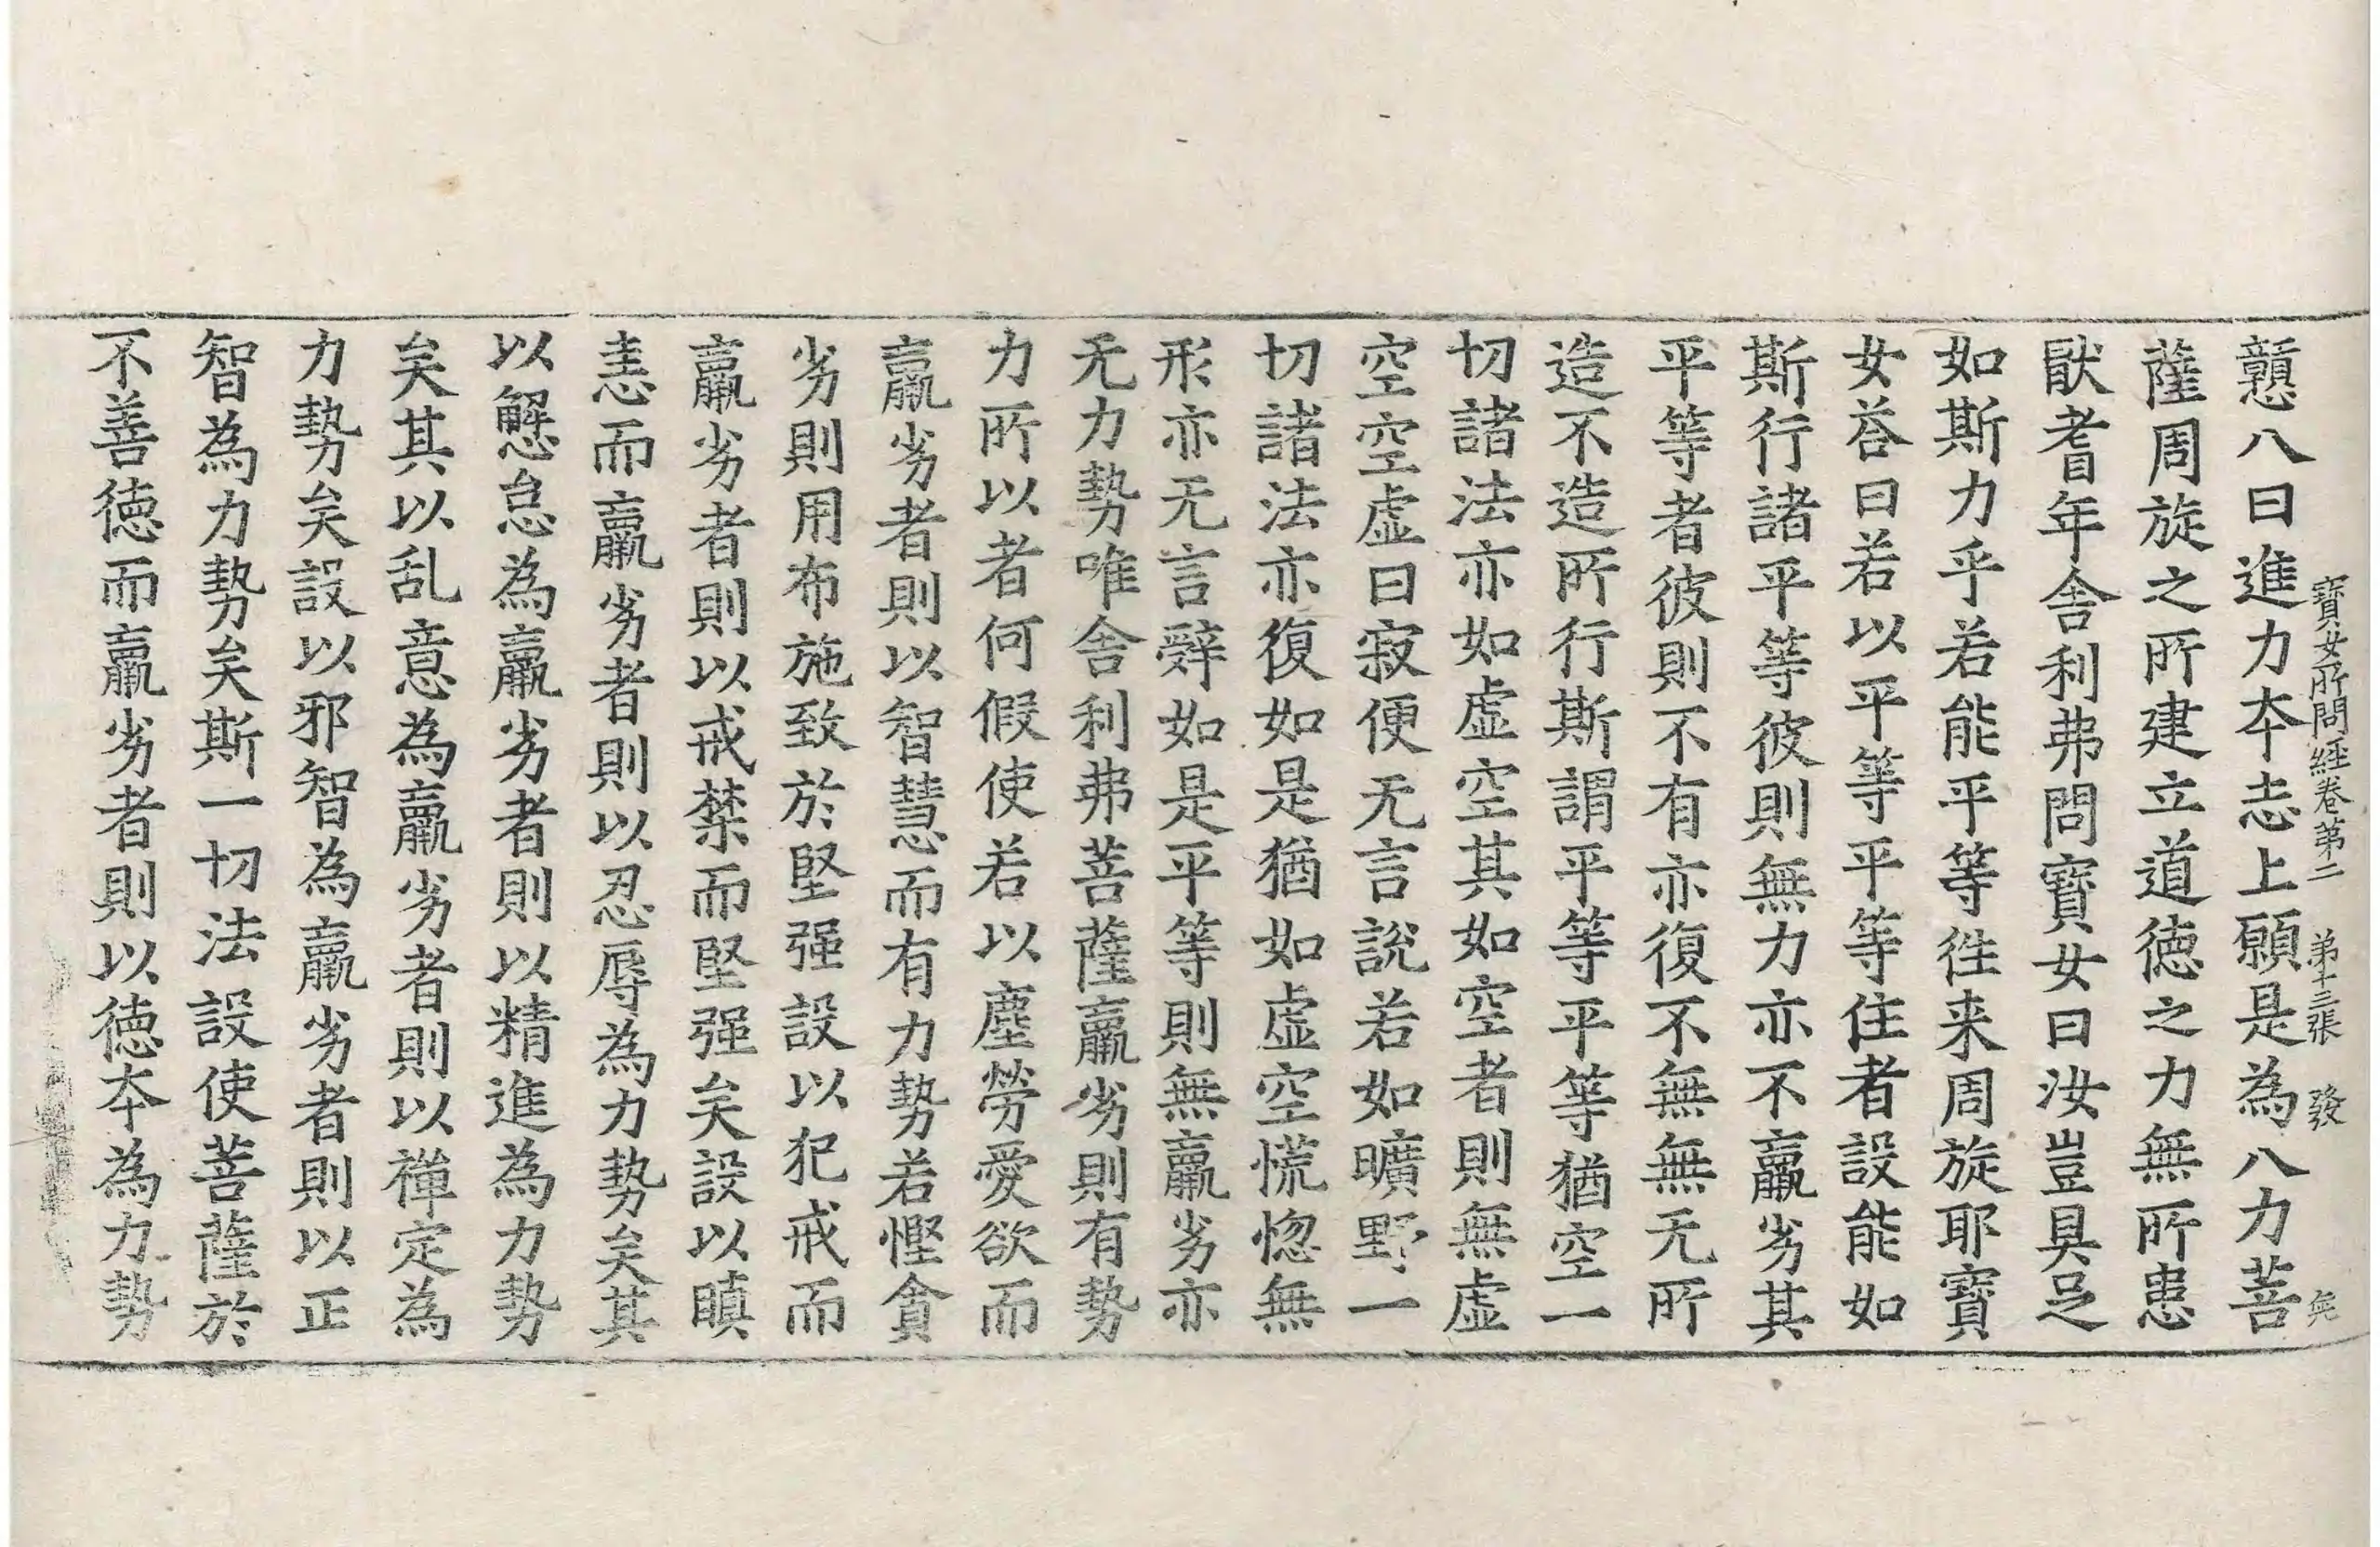 寶女所問經卷第二 弟十三張 發
戇八曰進力夲志上願是為八力菩
薩周旋之所建立道徳之力無所患
猒耆年舎利弗問寶女曰汝豈具足
如斯力乎若能平等徃来周旋耶寶
女荅曰若以平等平等住者設能如
斯行諸平等彼則無力亦不羸劣其
平等者彼則不有亦復不無無无所
造不造所行斯謂平等平等猶空一
切諸法亦如虛空其如空者則無虛
空空虛曰寂便无言說若如曠野一
切諸法亦復如是猶如虛空慌惚無
形亦无言辭如是平等則無羸劣亦
无力勢唯舎利弗菩薩羸劣則有勢
力所以者何假使若以塵勞愛欲而
羸劣者則以智慧而有力勢若慳貪
劣則用布施致於堅强設以犯戒而
羸劣者則以戒禁而堅强矣設以瞋
恚而羸劣者則以忍辱為力勢矣其
以懈怠為羸劣者則以精進為力勢
矣其以乱意為羸劣者則以禅定為
力勢矣設以邪智為羸劣者則以正
智為力勢矣斯一切法設使菩薩於
不善徳而羸劣者則以徳夲為力勢